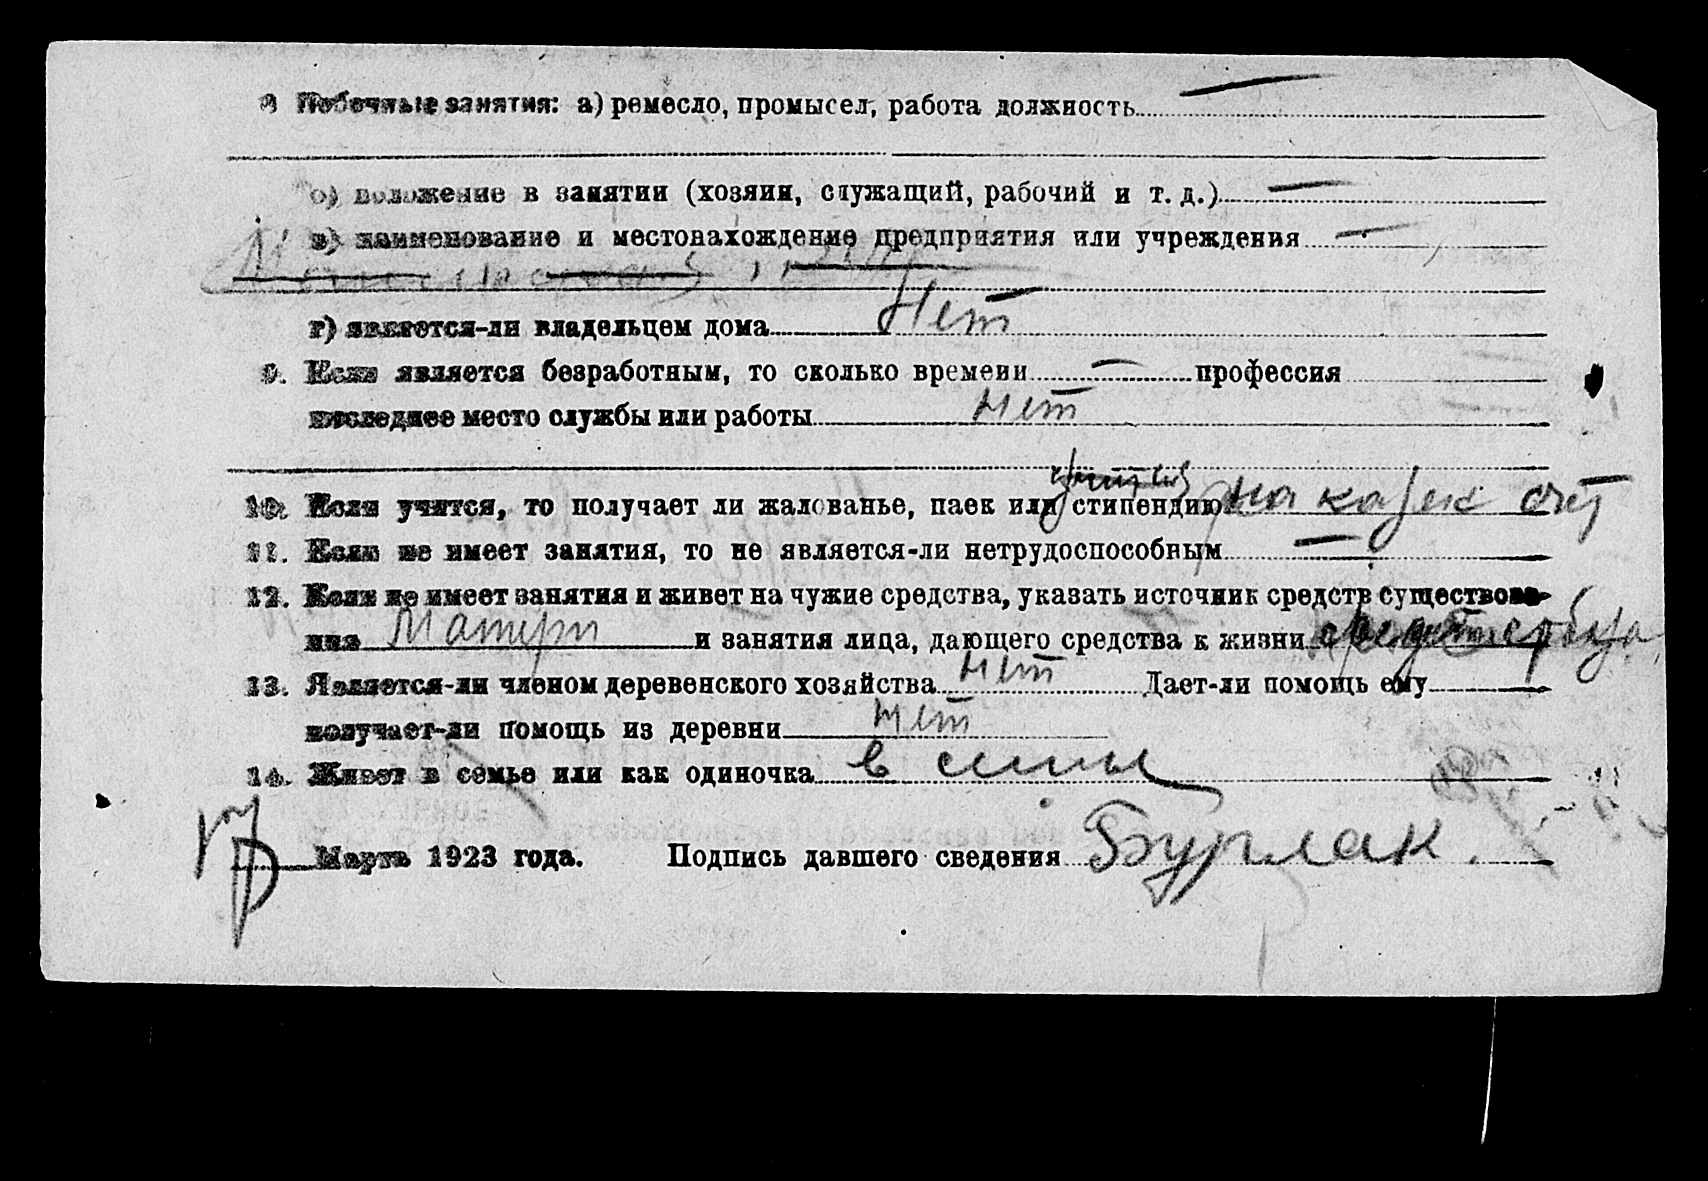 8 Побочные занятия: а) ремесло, промысел, работа должность —
б) положение в занятии (хозяин, служащий, рабочий и т. д.) —
в) наименование и местонахождение предприятия или учреждения —
г) является-ли владельцем дома Нет
9. Если является безработным, то сколько времени — профессия
последнее место службы или работы нет
10. Если учится, то получает ли жалованье, паек или стипендию на казен счет
11. Если не имеет занятия, то не является-ли нетрудоспособным —
12. Если не имеет занятия и живет на чужие средства, указать источник средств существова-
ния Матери и занятия лица, дающего средства к жизни
13. Является-ли членом деревенского хозяйства нет Дает-ли помощь ему —
получает-ли помощь из деревни нет
14. Живет в семье или как одиночка в семьи
Марта 1923 года. Подпись давшего сведения Бурлак.